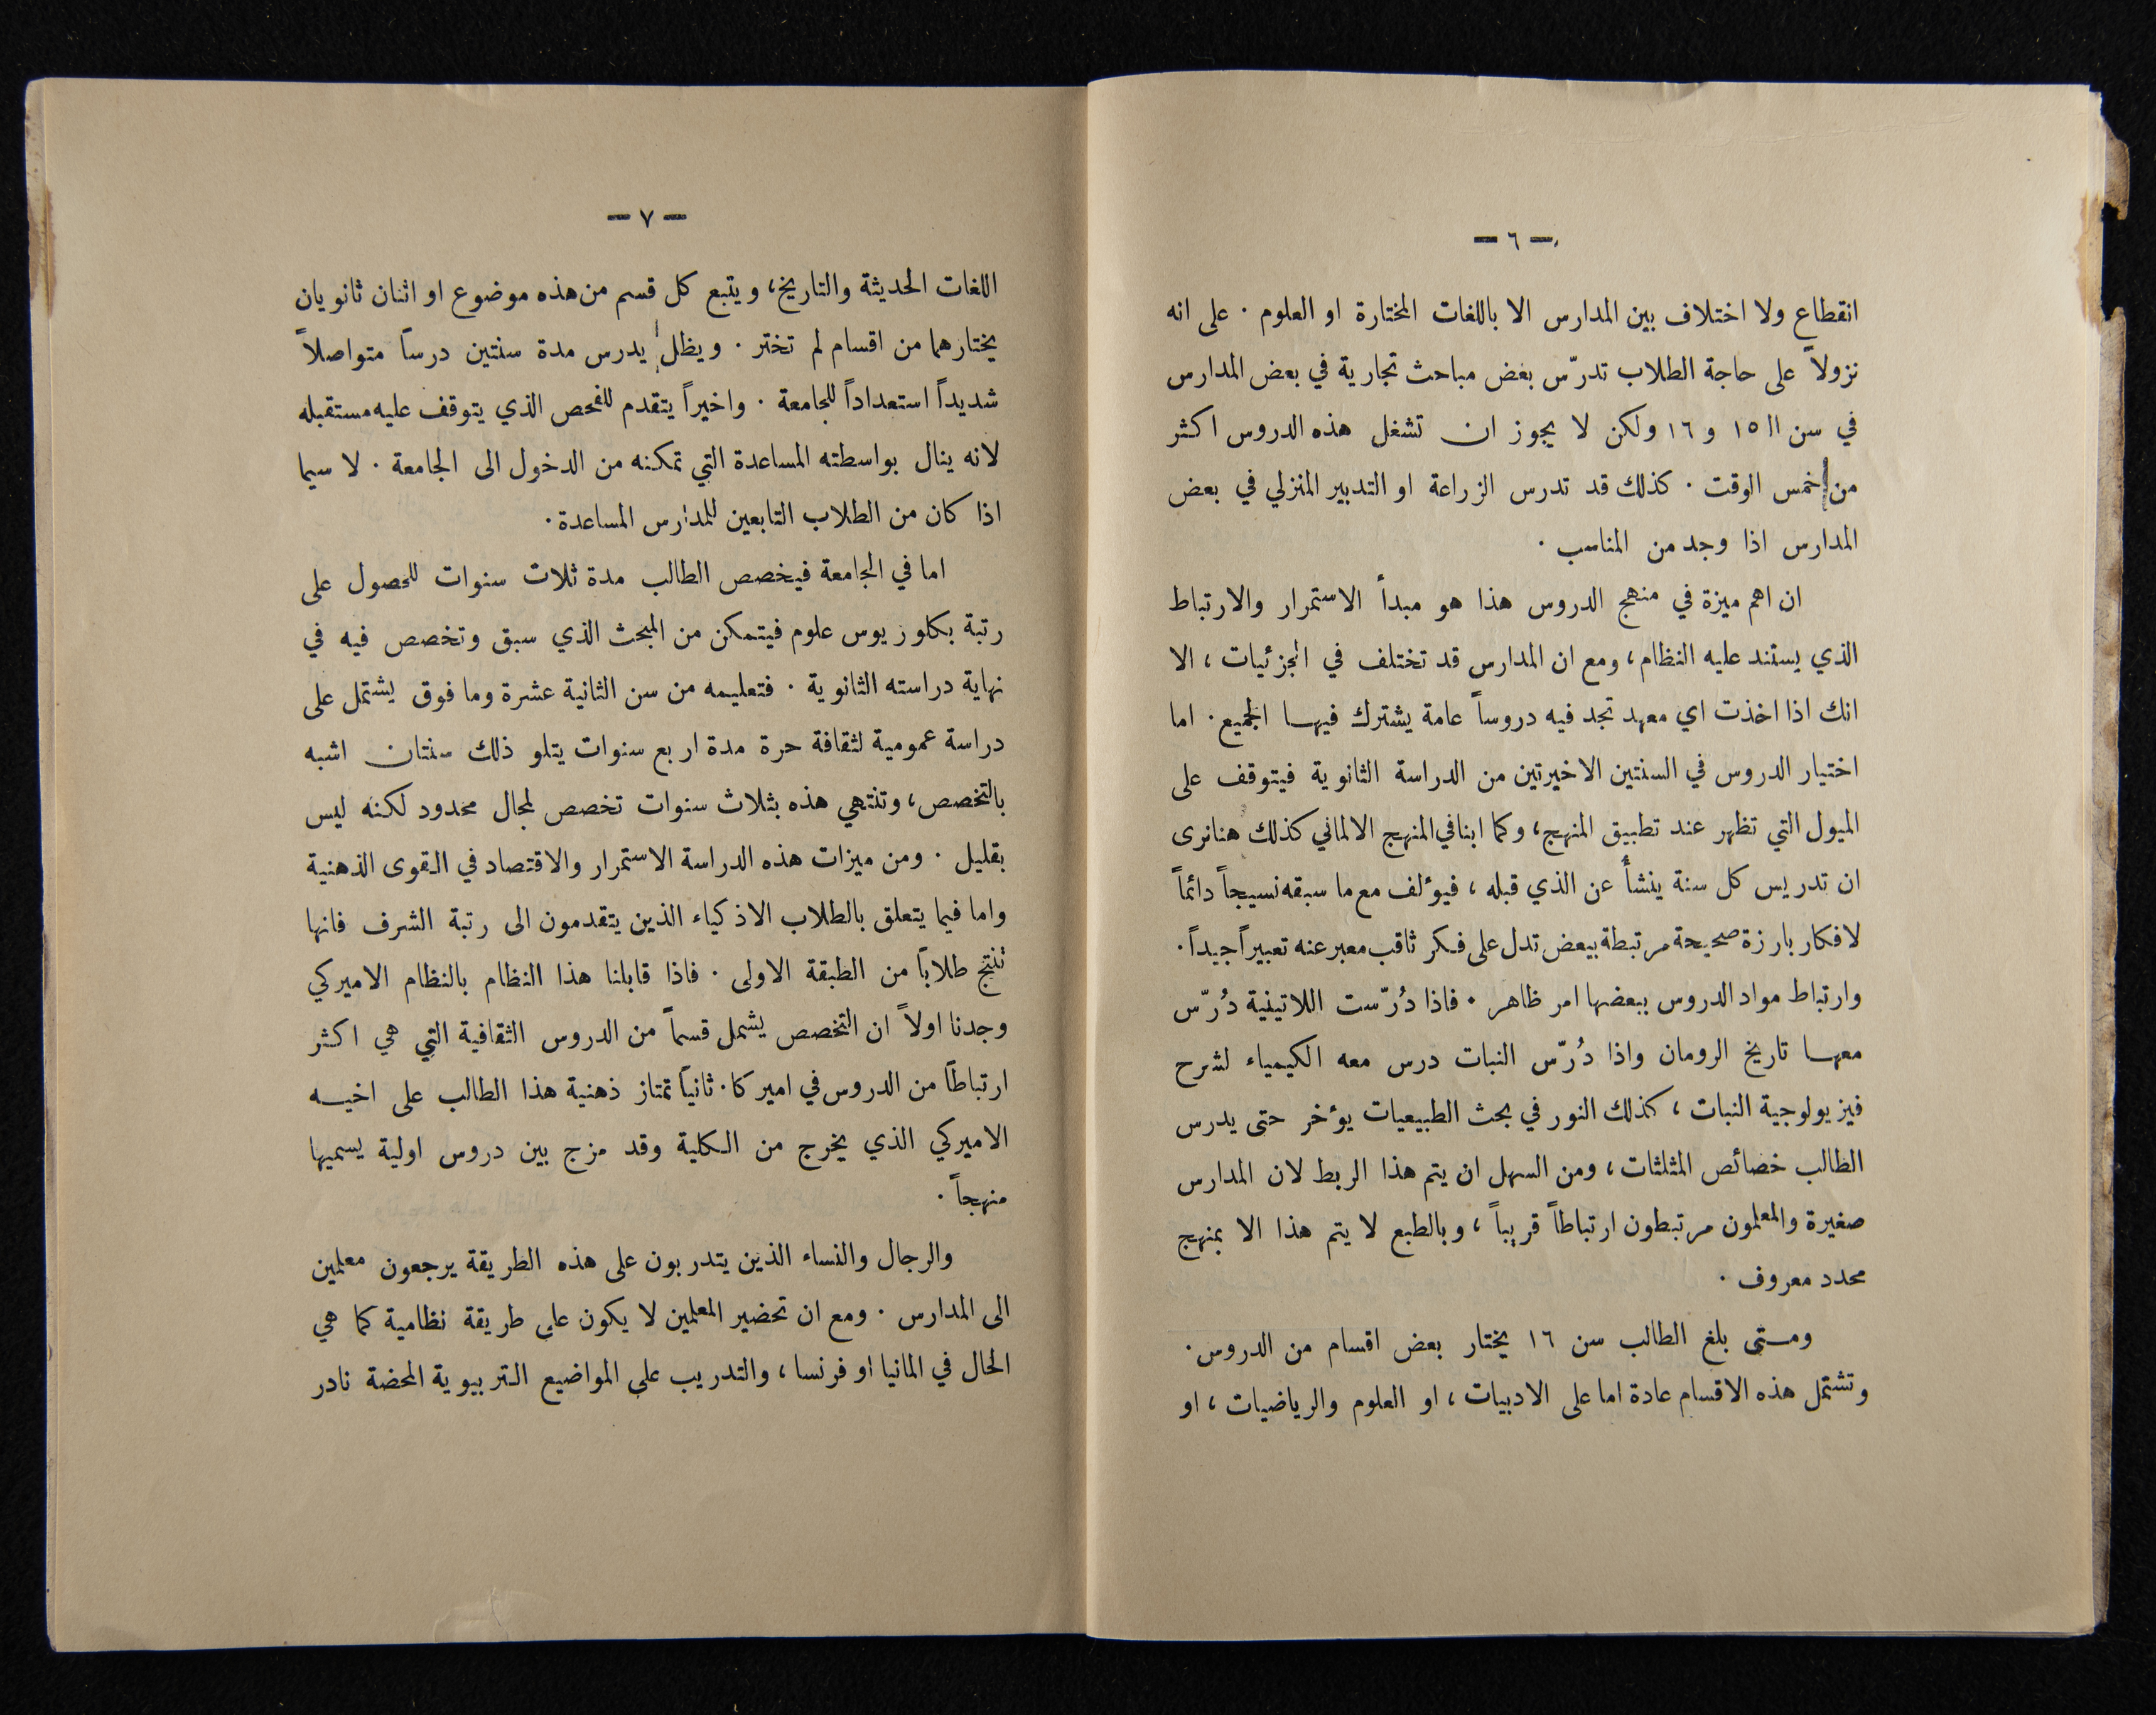 — ٦ —
انقطاع ولا اختلاف بين المدارس الا باللغات المختارة او العلوم . على انه
نزولاً على حاجة الطلاب تدرّس بعض مباحث تجارية في بعض المدارس
في سن الـ ١٥ و ١٦ ولكن لا يجوز ان تشغل هذه الدروس اكثر
من خمس الوقت . كذلك قد تدرس الزراعة او التدبير المنزلي في بعض
المدارس اذا وجد من المناسب .
ان اهم ميزة في منهج الدروس هذا هو مبدأ الاستمرار والارتباط
الذي يستند عليه النظام، ومع ان المدارس قد تختلف في الجزئيات ، الا
انك اذا اخذت اي معهد تجد فيه دروساً عامة يشترك فيها الجميع . اما
اختيار الدروس في السنتين الاخيرتين من الدراسة الثانوية فيتوقف على
الميول التي تظهر عند تطبيق المنهج، وكما ابنا في المنهج الالماني كذلك هنا نرى
ان تدريس كل سنة ينشأ عن الذي قبله ، فيؤلف مع ما سبقه نسيجاً دائماً
لافكار بارزة صحيحة مرتبطة ببعض تدل على فكر ثاقب معبر عنه تعبيراً جيداً .
وارتباط مواد الدروس ببعضها امر ظاهر . فاذا دُرّست اللاتينية دُرّس
معها تاريخ الرومان واذا دُرّس النبات درس معه الكيمياء لشرح
فيزيولوجية النبات ، كذلك النور في بحث الطبيعيات يؤخر حتى يدرس
الطالب خصائص المثلثات ، ومن السهل ان يتم هذا الربط لان المدارس
صغيرة والمعلمون مرتبطون ارتباطاً قريباً ، وبالطبع لا يتم هذا الا بمنهج
محدد معروف .
ومتى بلغ الطالب سن ١٦ يختار بعض اقسام من الدروس .
وتشتمل هذه الاقسام عادة اما على الادبيات ، او العلوم والرياضيات ، او
— ٧ —
اللغات الحديثة والتاريخ، ويتبع كل قسم من هذه موضوع او اثنان ثانويان
يختارهما من اقسام لم تختر . ويظل يدرس مدة سنتين درساً متواصلاً
شديداً استعداداً للجامعة . واخيراً يتقدم للفحص الذي يتوقف عليه مستقبله
لانه ينال بواسطته المساعدة التي تمكنه من الدخول الى الجامعة . لا سيما
اذا كان من الطلاب التابعين للمدارس المساعدة .
اما في الجامعة فيخصص الطالب مدة ثلاث سنوات للحصول على
رتبة بكلوريوس علوم فيتمكن من المبحث الذي سبق وتخصص فيه في
نهاية دراسته الثانوية . فتعليمه من سن الثانية عشرة وما فوق يشتمل على
دراسة عمومية لثقافة حرة مدة اربع سنوات يتلو ذلك سنتان اشبه
بالتخصص، وتنتهي هذه بثلاث سنوات تخصص لمجال محدود لكنه ليس
بقليل . ومن ميزات هذه الدراسة الاستمرار والاقتصاد في القوى الذهنية
واما فيما يتعلق بالطلاب الاذكياء الذين يتقدمون الى رتبة الشرف فانها
تنتج طلاباً من الطبقة الاولى . فاذا قابلنا هذا النظام بالنظام الاميركي
وجدنا اولاً ان التخصص يشمل قسماً من الدروس الثقافية التي هي اكثر
ارتباطاً من الدروس في اميركا . ثانياً تمتاز ذهنية هذا الطالب على اخيه
الاميركي الذي يخرج من الكلية وقد مزج بين دروس اولية يسميها
منهجاً .
والرجال والنساء الذين يتدربون على هذه الطريقة يرجعون معلمين
الى المدارس . ومع ان تحضير المعلمين لا يكون على طريقة نظامية كما هي
الحال في المانيا او فرنسا ، والتدريب على المواضيع التربيوية المحضة نادر